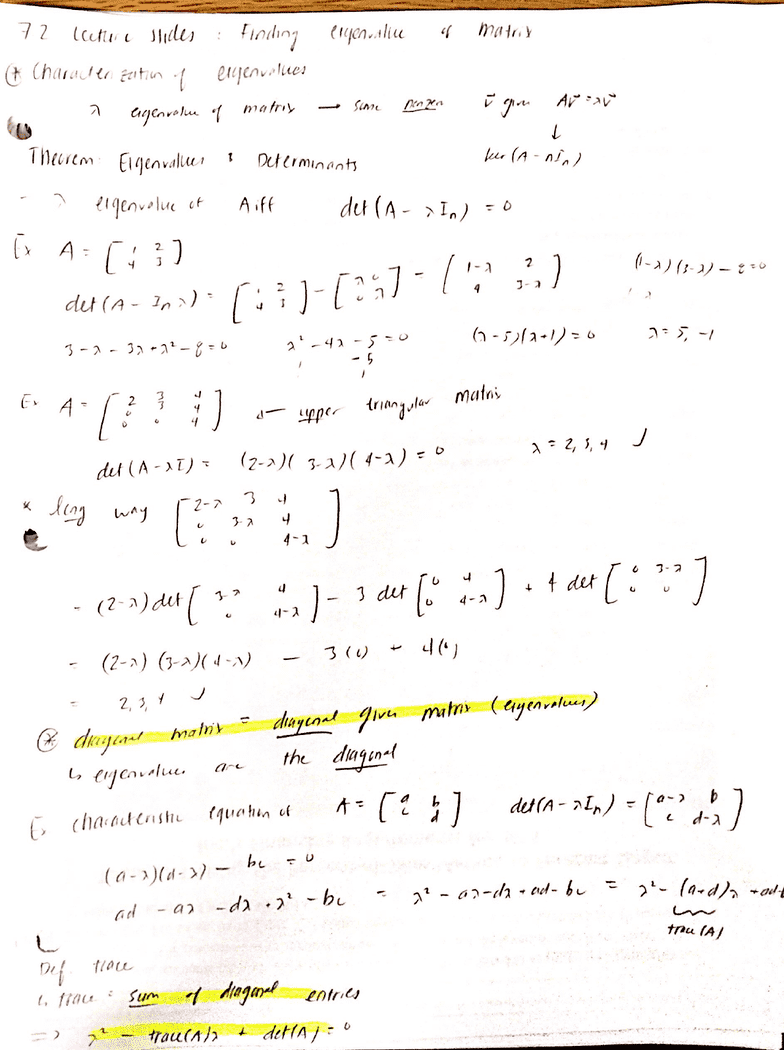 7.2 lecture slides : Finding eigenvalue of matrix
* Characterization of eigenvalues
λ eigenvalue of matrix → some nonzero v⃗ given Av⃗ = λv⃗
↓
Theorem: Eigenvalues & Determinants ker(A - λIn)
- λ eigenvalue of A iff det(A - λIn) = 0
Ex A = [1 2; 4 3]
det(A - Inλ) = [1 2; 4 3] - [λ 0; 0 λ] = [1-λ 2; 4 3-λ] (1-λ)(3-λ) - 8 = 0
3 - λ - 3λ + λ² - 8 = 0 λ² - 4λ - 5 = 0 (λ-5)(λ+1) = 0 λ = 5, -1
-5
1
Ex A = [2 3 4; 0 3 4; 0 0 4] ← upper triangular matrix
det(A - λI) = (2-λ)(3-λ)(4-λ) = 0 λ = 2, 3, 4 ✓
* long way [2-λ 3 4; 0 3-λ 4; 0 0 4-λ]
= (2-λ) det [3-λ 4; 0 4-λ] - 3 det [0 4; 0 4-λ] + 4 det [0 3-λ; 0 0]
= (2-λ)(3-λ)(4-λ) - 3(0) + 4(0)
= 2, 3, 4 ✓
* diagonal matrix = diagonal given matrix (eigenvalues)
↳ eigenvalues are the diagonal
Ex characteristic equation of A = [a b; c d] det(A - λIn) = [a-λ b; c d-λ]
(a-λ)(d-λ) - bc = 0
ad - aλ - dλ + λ² - bc = λ² - aλ - dλ + ad - bc = λ² - (a+d)λ + ad-
trace(A)
Def. trace
↳ trace = sum of diagonal entries
=> λ² - trace(A)λ + det(A) = 0